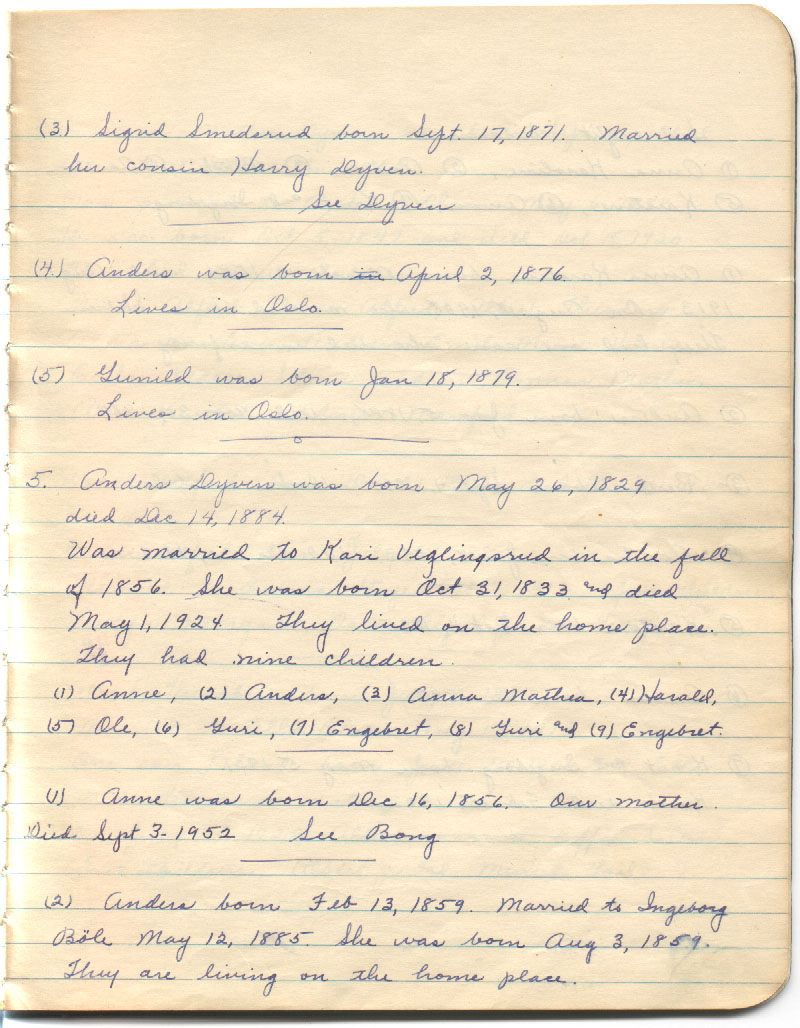 (3) Sigrid Smedsrud born Sept. 17, 1871. Married
her cousin Harry Dyven.
See Dyven
(4.) Anders was born in April 2, 1876.
Lives in Oslo.
(5) Gunild was born Jan 18, 1879.
Lives in Oslo.
5. Anders Dyven was born May 26, 1829
died Dec 14, 1884.
Was married to Kari Veglingsrud in the fall
of 1856. She was born Oct 31, 1833 and died
May 1, 1924 They lived on the home place.
They had nine children.
(1) Anne, (2) Anders, (3) Anna Mathea, (4) Harald,
(5) Ole, (6) Guri, (7) Engebret, (8) Guri and (9) Engebret.
(1) Anne was born Dec 16, 1856. Our mother.
Died Sept 3-1952 See Bong
(2) Anders born Feb 13, 1859. Married to Ingeborg
Böle May 12, 1885. She was born Aug 3, 1859.
They are living on the home place.